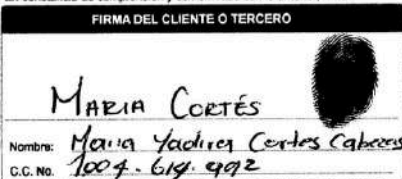 FIRMA DEL CLIENTE O TERCERO
MARIA CORTÉS
Nombre: Maria Yadira Cortes Cabezas
C.C. No. 1004.614.992